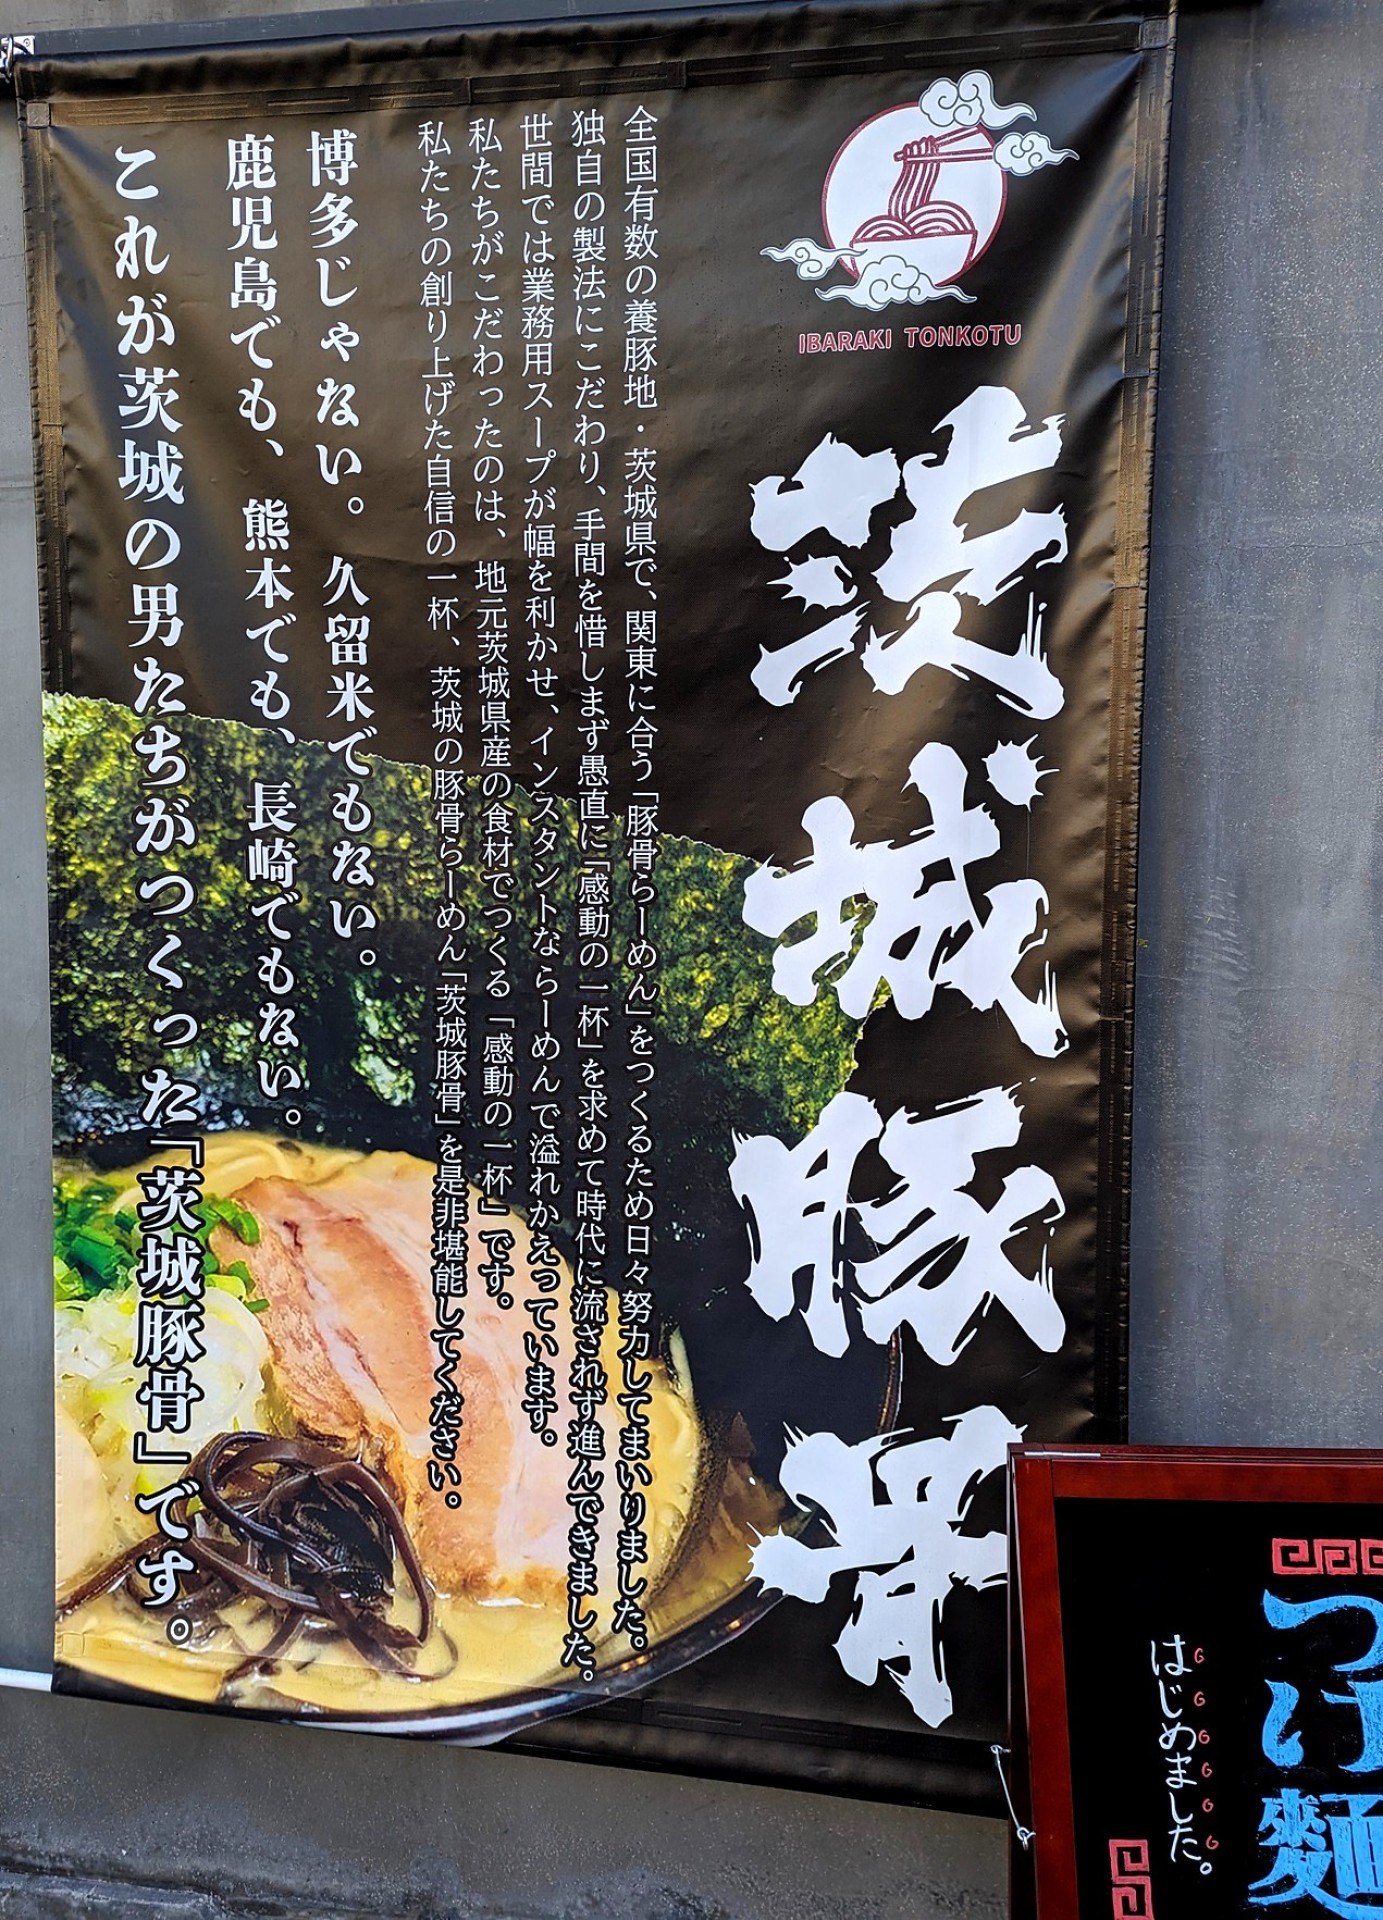 IBARAKI TONKOTU
茨城豚骨
全国有数の養豚地・茨城県で、関東に合う「豚骨らーめん」をつくるため日々努力してまいりました。
独自の製法にこだわり、手間を惜しまず愚直に「感動の一杯」を求めて時代に流されず進んできました。
世間では業務用スープが幅を利かせ、インスタントならーめんで溢れかえっています。
私たちがこだわったのは、地元茨城県産の食材でつくる「感動の一杯」です。
私たちの創り上げた自信の一杯、茨城の豚骨らーめん「茨城豚骨」を是非堪能してください。
博多じゃない。久留米でもない。
鹿児島でも、熊本でも、長崎でもない。
これが茨城の男たちがつくった「茨城豚骨」です。
つけ麺
はじめました。